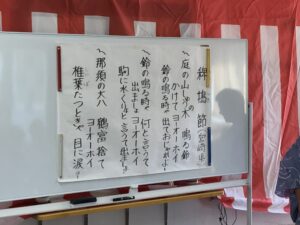 稗搗節（宮崎県）
庭の山しゅの木 鳴る鈴
かけて ヨーオーホイ
鈴の鳴る時ゃ 出ておじゃれヨー
鈴の鳴る時ゃ 何と言うて
出ましょ ヨーオーホイ
駒に水くりょと 言うて出ましょ
那須の大八 鶴富捨てて
ヨーオーホイ
椎葉たつときゃ 目に涙ヨー